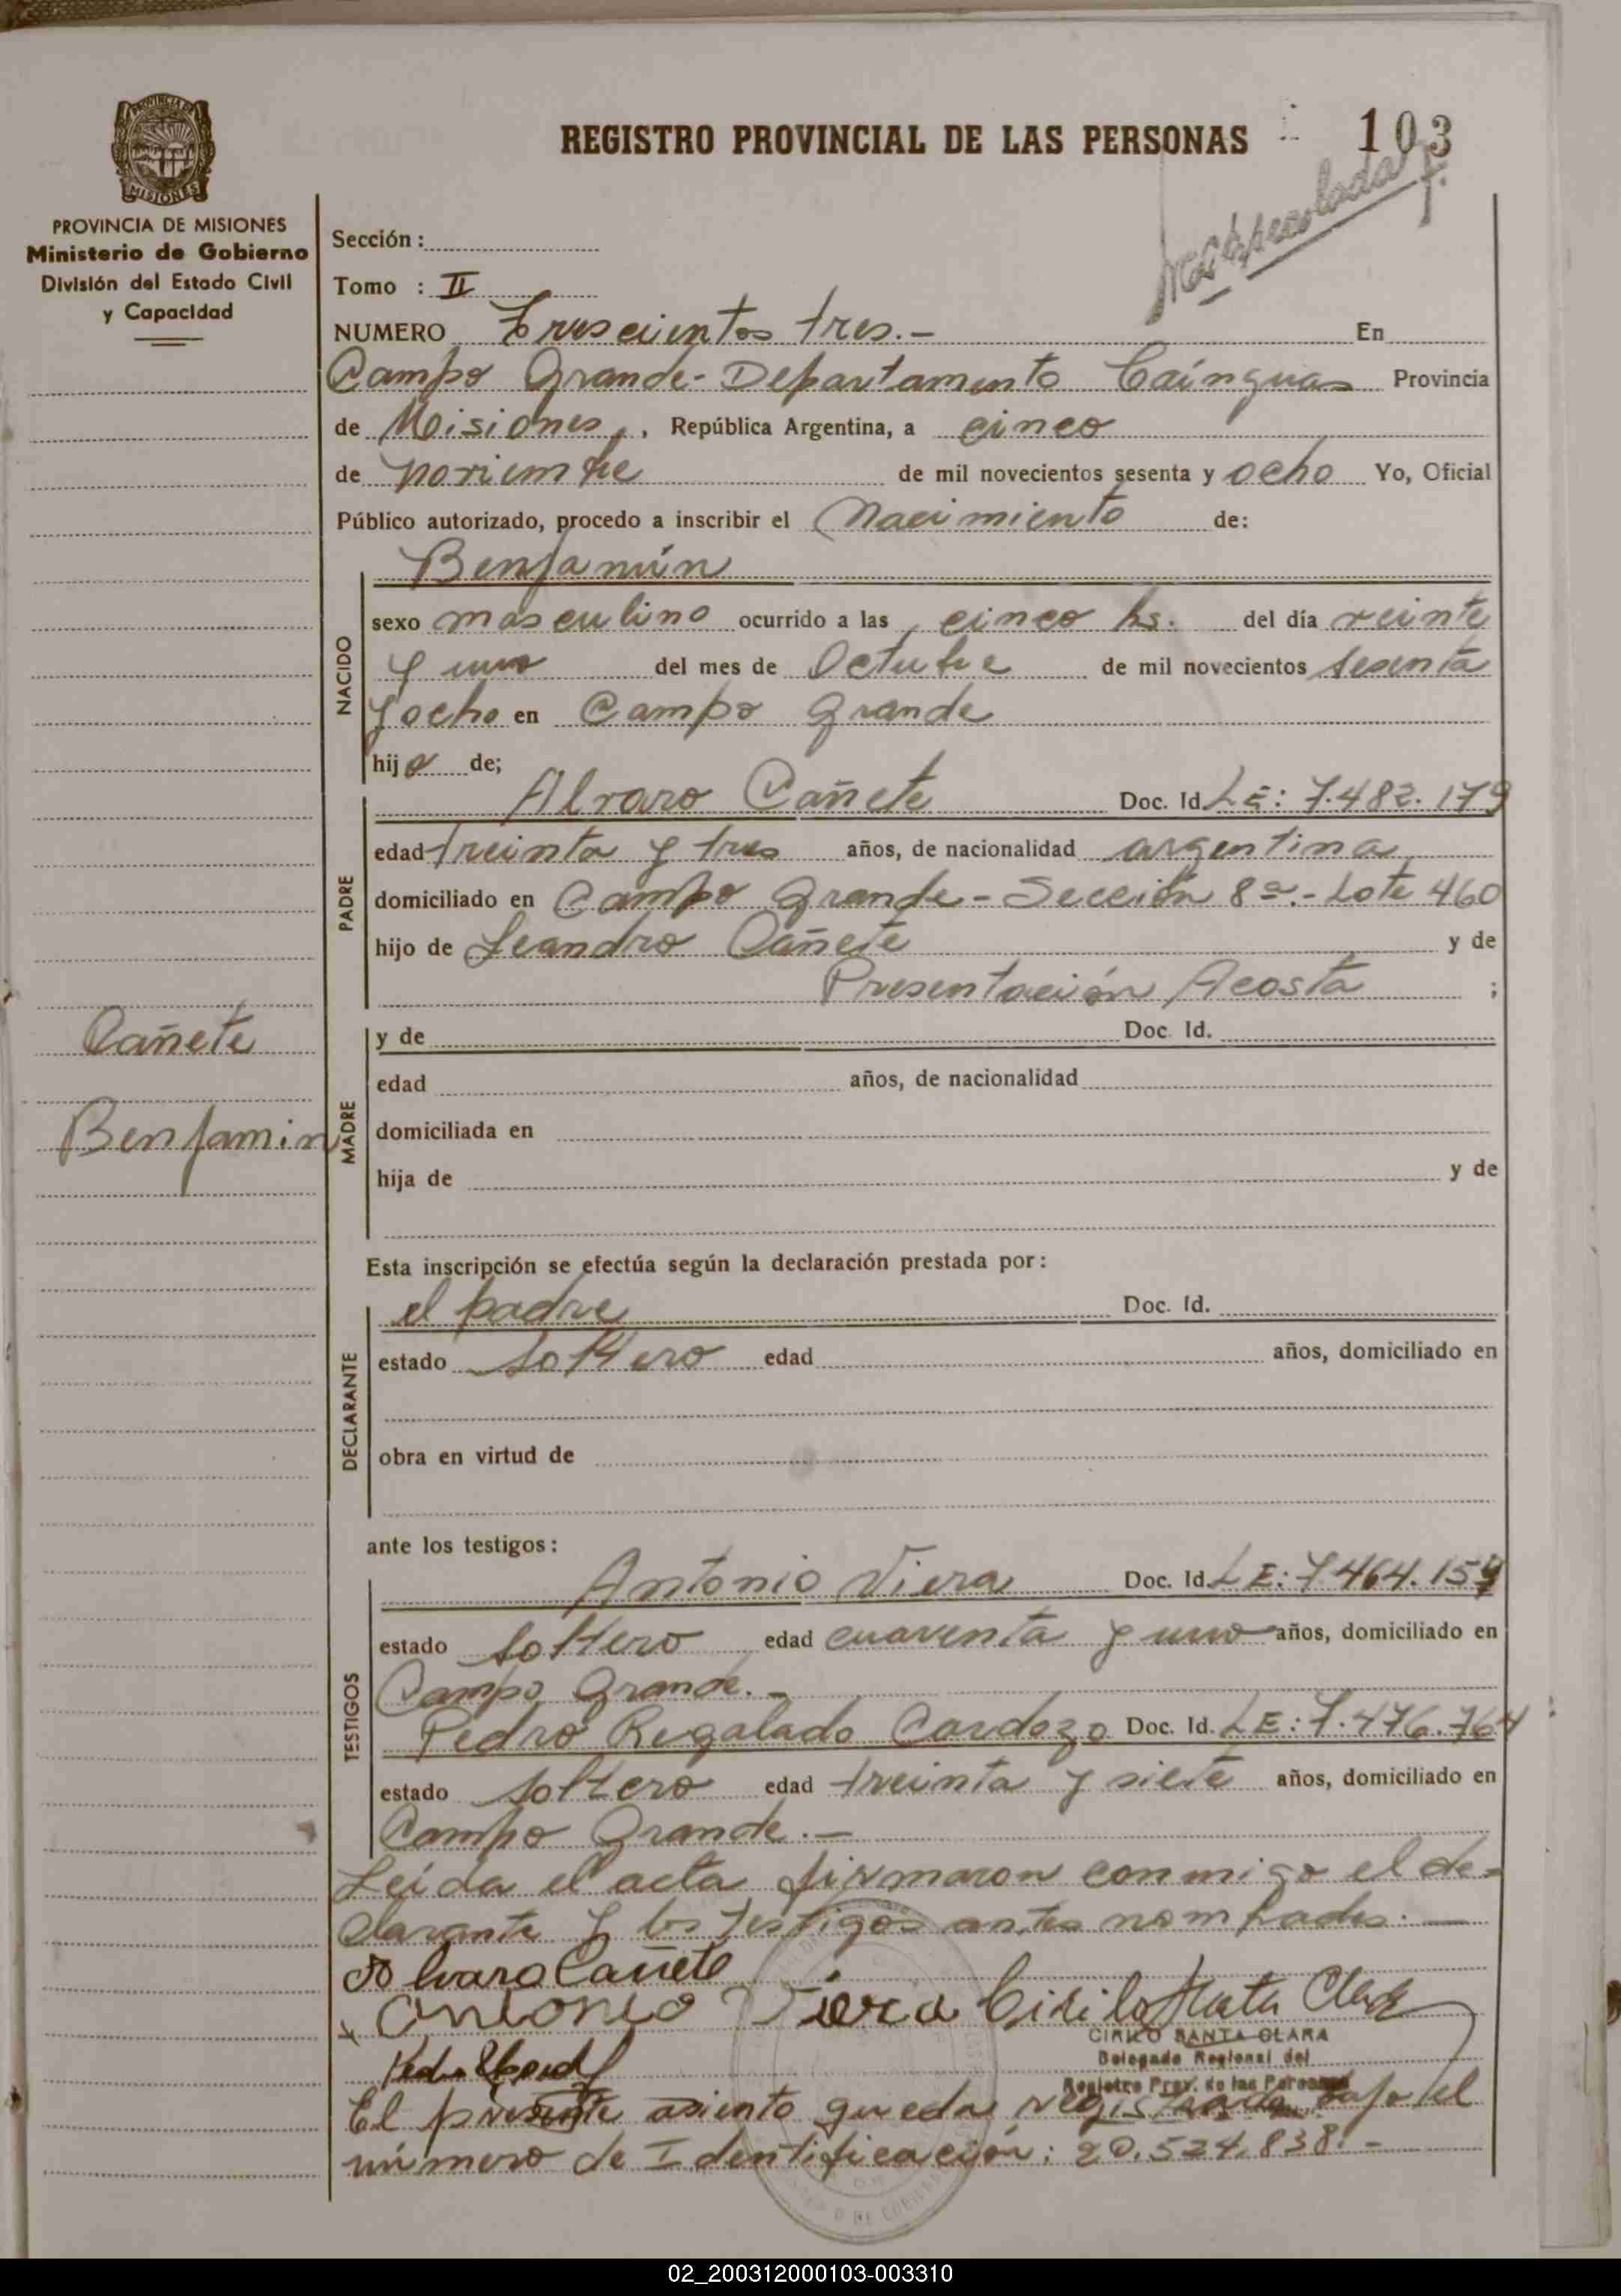 REGISTRO PROVINCIAL DE LAS PERSONAS
103
PROVINCIA DE MISIONES
MISIONES
PROVINCIA DE MISIONES
Ministerio de Gobierno
División del Estado Civil
y Capacidad
Sección :
Tomo : II
NUMERO Trescientos tres.- En
Campo Grande- Departamento Caínguas Provincia
de Misiones, República Argentina, a cinco
de noviembre de mil novecientos sesenta y ocho Yo, Oficial
Público autorizado, procedo a inscribir el Nacimiento de:
NACIDO
Benjamín
sexo masculino ocurrido a las cinco hs. del día veinte
y uno del mes de Octubre de mil novecientos sesenta
y ocho en Campo Grande
hijo de;
PADRE
Alvaro Cañete Doc. Id. LE: 7.482.179
edad treinta y tres años, de nacionalidad argentina
domiciliado en Campo Grande - Sección 8ª.- Lote 460
hijo de Leandro Cañete y de
Presentación Acosta ;
Cañete
Benjamin
MADRE
y de Doc. Id.
edad años, de nacionalidad
domiciliada en
hija de y de
Esta inscripción se efectúa según la declaración prestada por:
DECLARANTE
el padre Doc. Id.
estado soltero edad años, domiciliado en
obra en virtud de
ante los testigos:
TESTIGOS
Antonio Viera Doc. Id. LE: 7.464.154
estado soltero edad cuarenta y uno años, domiciliado en
Campo Grande.-
Pedro Regalado Cardozo Doc. Id. LE: 7.476.764
estado soltero edad treinta y siete años, domiciliado en
Campo Grande.-
Leída el acta firmaron conmigo el de-
clarante y los testigos antes nombrados.-
Alvaro Cañete
Antonio Viera Cirilo Santa Clara
CIRILO SANTA CLARA
Delegado Regional del
Registro Prov. de las Personas
Pedro
El presente asiento queda registrado bajo el
número de Identificación: 20.524.838.-
02_200312000103-003310